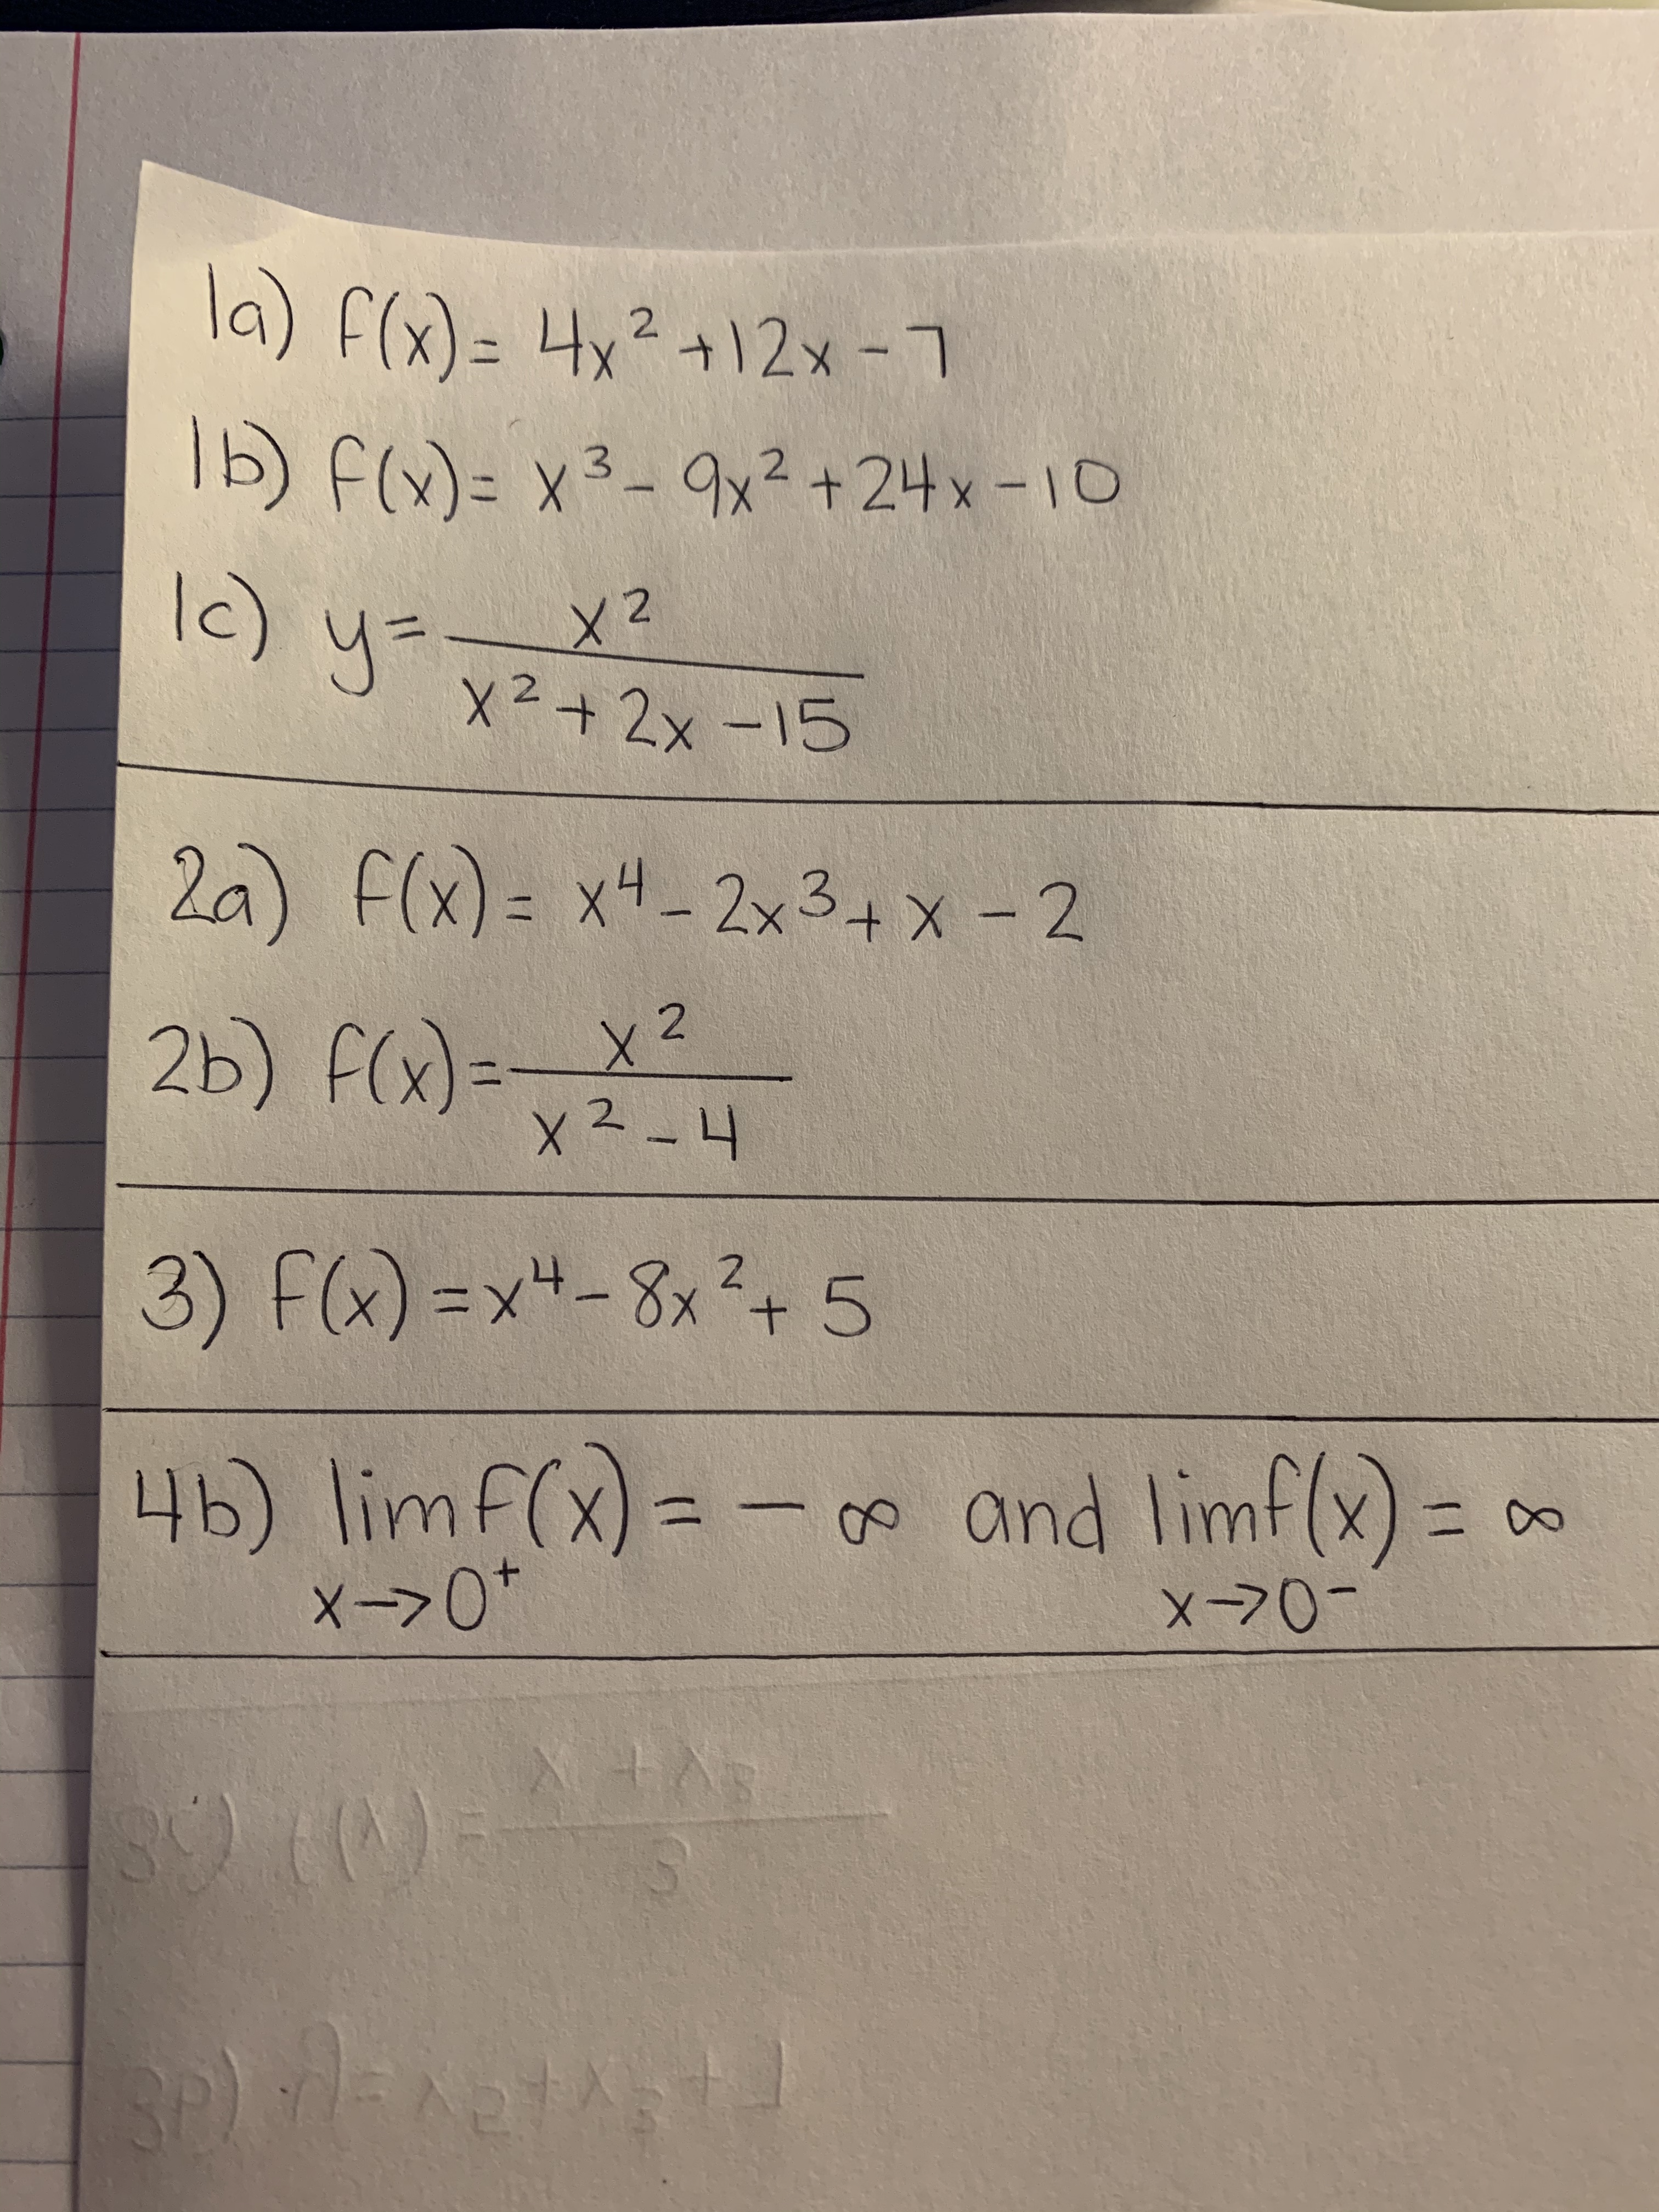 1a) f(x) = 4x² + 12x - 7
1b) f(x) = x³ - 9x² + 24x - 10
1c) y = x² / (x² + 2x - 15)
2a) f(x) = x⁴ - 2x³ + x - 2
2b) f(x) = x² / (x² - 4)
3) f(x) = x⁴ - 8x² + 5
4b) lim f(x) = - ∞ and lim f(x) = ∞
x→0⁺ x→0⁻